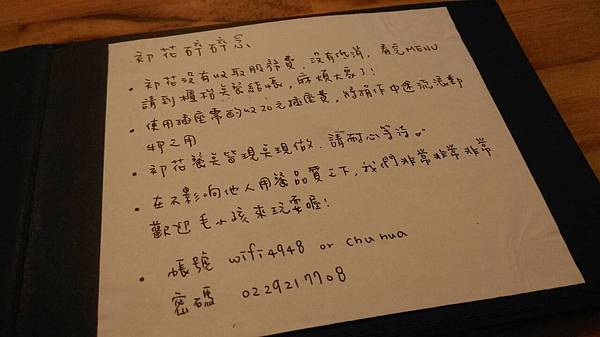 初花碎碎念
• 初花沒有收取服務費，沒有低消，看完MENU
請到櫃檯點餐結帳，麻煩大家了！
• 使用插座需酌收20元插座費，將捐作中途流浪動
物之用
• 初花餐點皆現點現做，請耐心等待。
• 在不影响他人用餐品質之下，我們非常非常非常
歡迎毛小孩來玩耍喔！
• 帳號 wifi4948 or chuhua
密碼 0229217708